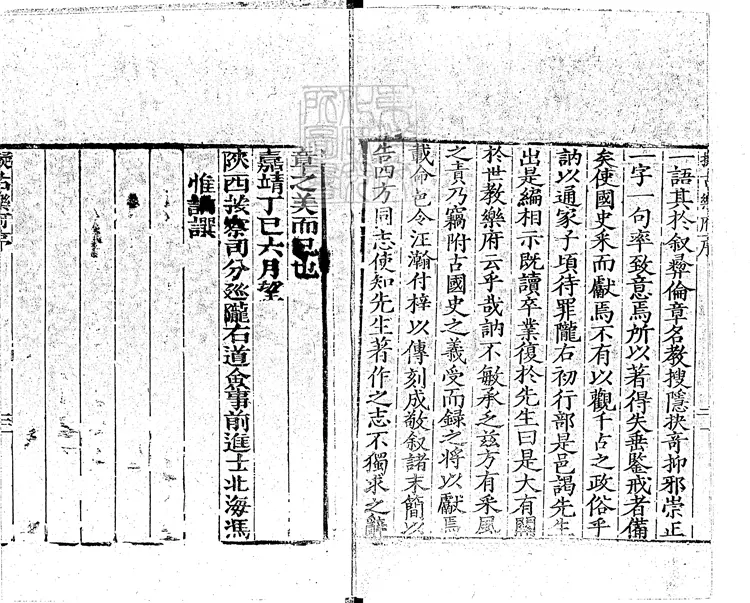 一語其於叙彞倫章名教搜隱抉竒抑邪崇正
一字一句率致意焉所以著得失垂鑒戒者備
矣使國史采而獻焉不有以觀千古之政俗乎
訥以通家子頃待罪隴右初行部是邑謁先生
出是編相示既讀卒業復於先生曰是大有關
於世教樂府云乎哉訥不敏承乏兹方有采風
之責乃竊附古國史之義受而録之將以獻焉
載命邑令汪瀚付梓以傳刻成敬叙諸末簡以
告四方同志使知先生著作之志不獨求之辭
章之美而已也
嘉靖丁巳六月望
陝西按察司分廵隴右道僉事前進士北海馮
惟訥譔